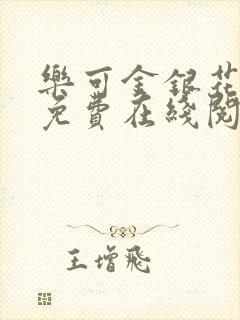 樂可金銀花
免費在綫閱
王增飛